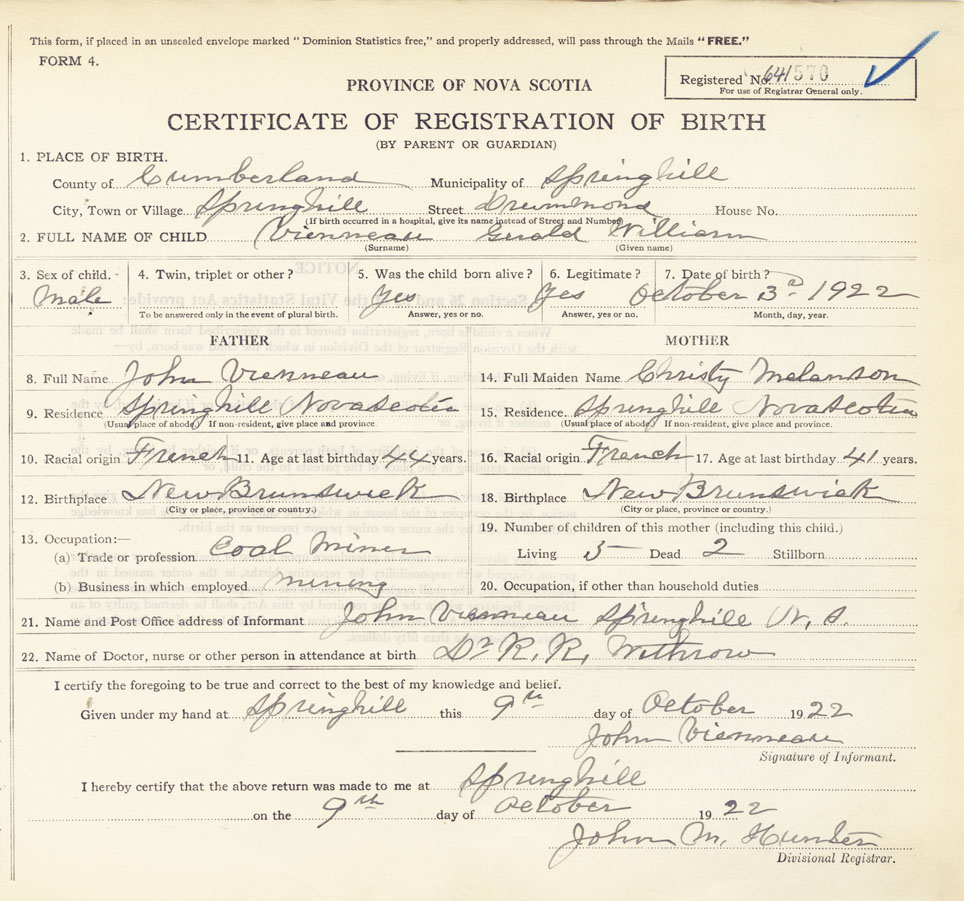 This form, if placed in an unsealed envelope marked " Dominion Statistics free," and properly addressed, will pass through the Mails "FREE."
FORM 4.
Registered No. 641570
For use of Registrar General only.
PROVINCE OF NOVA SCOTIA
CERTIFICATE OF REGISTRATION OF BIRTH
(BY PARENT OR GUARDIAN)
1. PLACE OF BIRTH.
County of Cumberland Municipality of Springhill
City, Town or Village Springhill Street Drummond House No.
(If birth occurred in a hospital, give its name instead of Street and Number)
2. FULL NAME OF CHILD Vienneau Gerald William
(Surname) (Given name)
3. Sex of child. - 4. Twin, triplet or other? 5. Was the child born alive? 6. Legitimate? 7. Date of birth?
Male Yes Yes October 3rd 1922
To be answered only in the event of plural birth. Answer, yes or no. Answer, yes or no. Month, day, year.
FATHER MOTHER
8. Full Name John Vienneau 14. Full Maiden Name Christy Melanson
9. Residence Springhill Nova Scotia 15. Residence. Springhill Nova Scotia
(Usual place of abode) If non-resident, give place and province. (Usual place of abode) If non-resident, give place and province.
10. Racial origin French 11. Age at last birthday 44 years. 16. Racial origin French 17. Age at last birthday 41 years.
12. Birthplace New Brunswick 18. Birthplace New Brunswick
(City or place, province or country.) (City or place, province or country.)
13. Occupation:— 19. Number of children of this mother (including this child.)
(a) Trade or profession Coal Miner Living 5 Dead 2 Stillborn
(b) Business in which employed mining 20. Occupation, if other than household duties
21. Name and Post Office address of Informant John Vienneau Springhill N. S.
22. Name of Doctor, nurse or other person in attendance at birth Dr R. R. Withrow
I certify the foregoing to be true and correct to the best of my knowledge and belief.
Given under my hand at Springhill this 9th day of October 1922
John Vienneau
Signature of Informant.
I hereby certify that the above return was made to me at Springhill
on the 9th day of October 1922
John M. Hunter
Divisional Registrar.